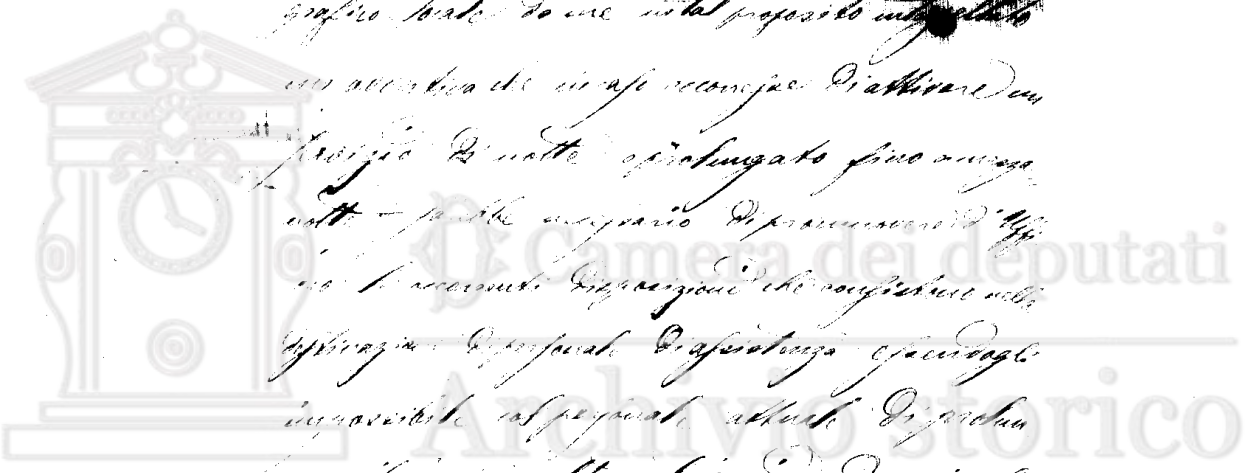 grafico locale da me in tal proposito interpellato
mi avvertiva che in caso occorresse di attivare un
servizio di notte o prolungato fino a mezza
notte – sarebbe necessario di promuovere d'Uffi
cio le occorrenti disposizioni che consistono nella
destinazione di personale d'assistenza essendogli
impossibile col personale attuale di prolun
Camera dei deputati
Archivio storico